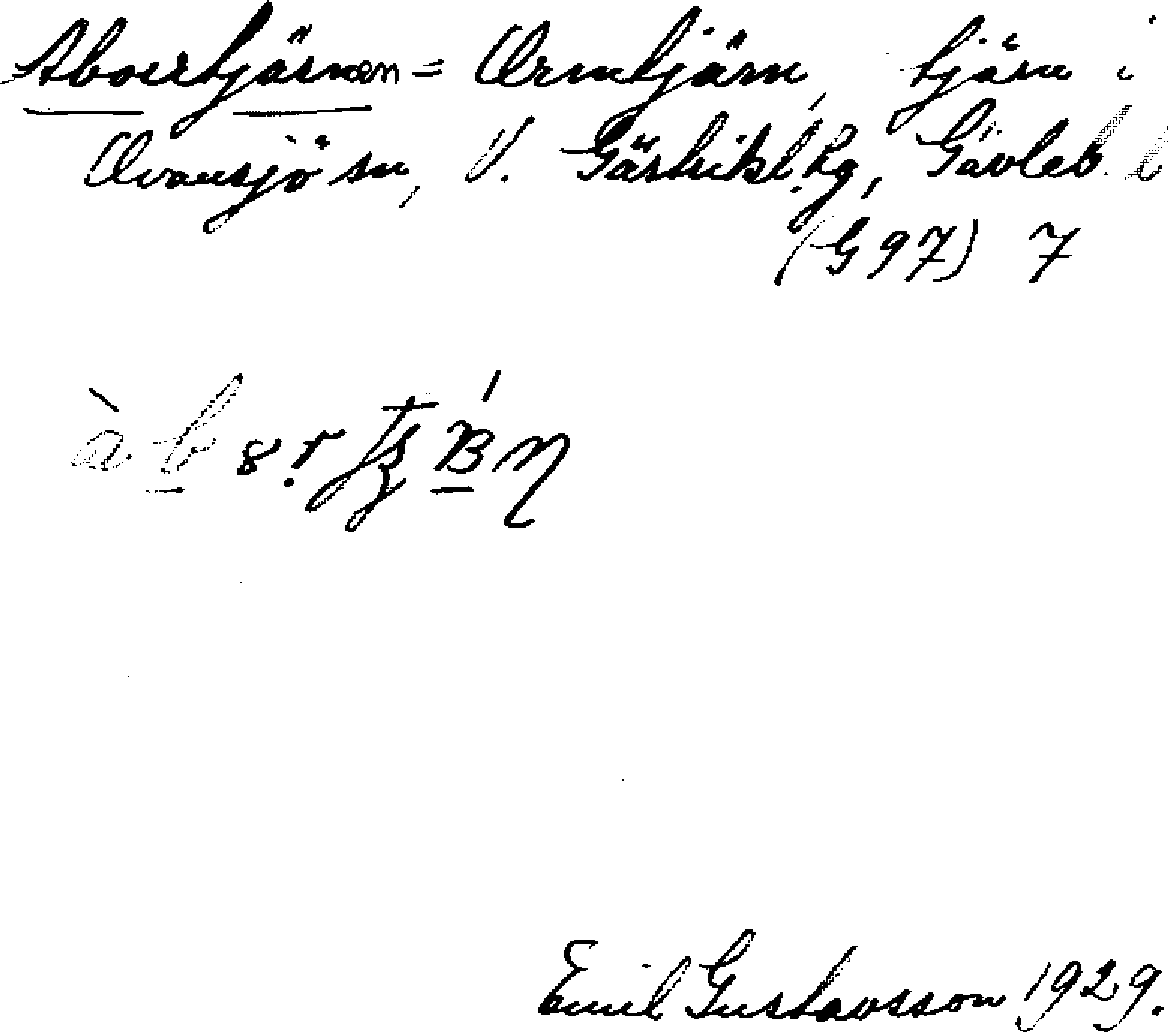 Aborrtjärnen = Ormtjärn, tjärn i
Ovansjö sn, V. Gästrikl. hg, Gävleb. l
(G 97) 7
Emil Gustavsson 1929.